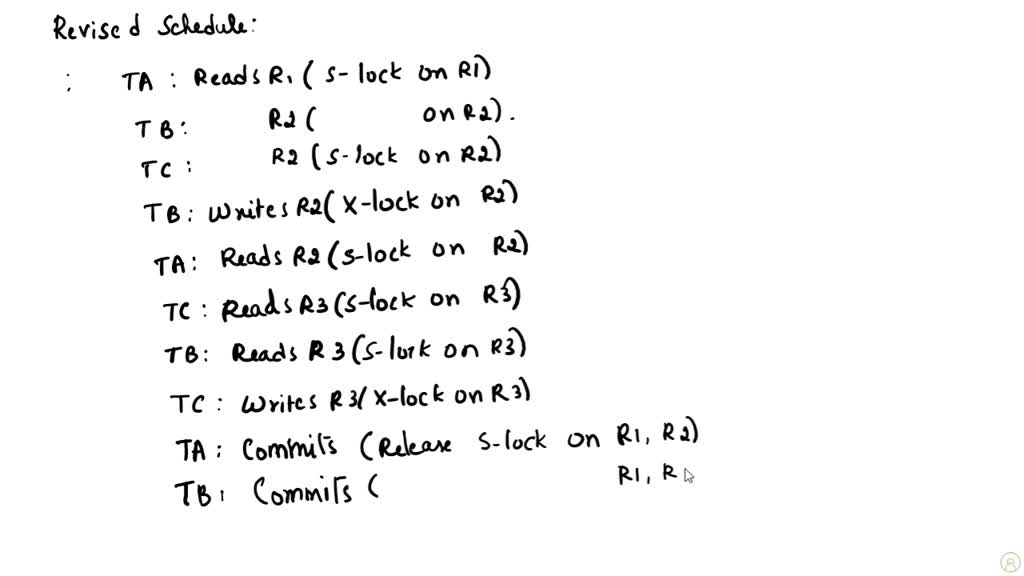 Revised Schedule:
: TA : Reads R1 ( S-lock on R1)
TB: R2 ( on R2).
TC : R2 (S-lock on R2)
TB : Writes R2( X-lock on R2)
TA : Reads R2 (S-lock on R2)
TC : Reads R3 (S-lock on R3)
TB : Reads R3 (S-lock on R3)
TC : Writes R3( X-lock on R3)
TA : Commits (Release S-lock on R1, R2)
TB : Commits ( R1, R